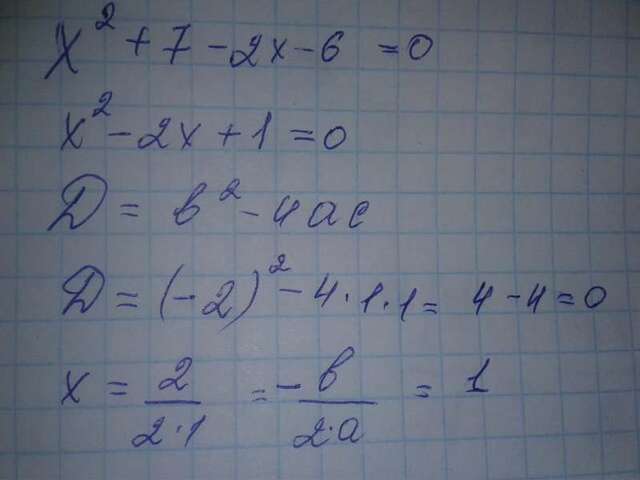 x² + 7 - 2x - 6 = 0
x² - 2x + 1 = 0
D = b² - 4ac
D = (-2)² - 4·1·1 = 4 - 4 = 0
x = 2/2·1 = -b/2·a = 1